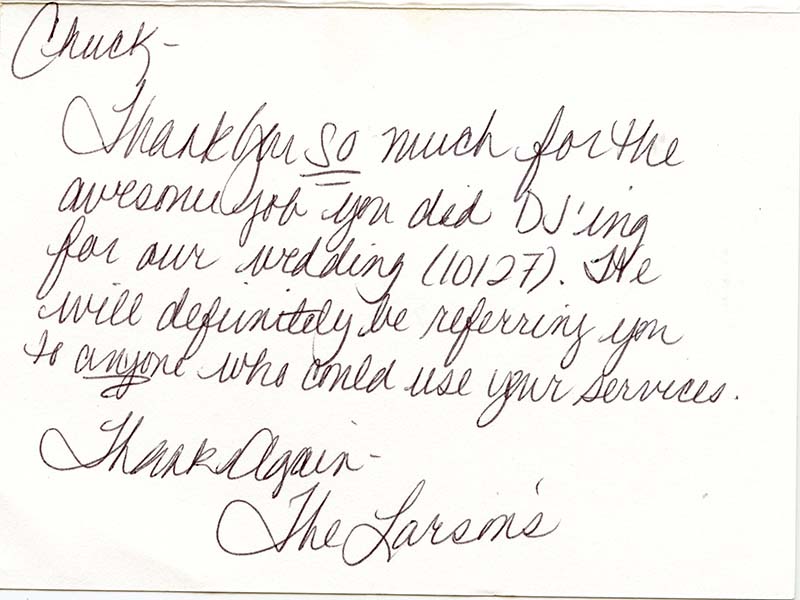 Chuck-
Thank You so much for the
awesome job you did DJ'ing
for our wedding (10/27). We
will definitely be referring you
to anyone who could use your services.
Thanks Again-
The Larson's